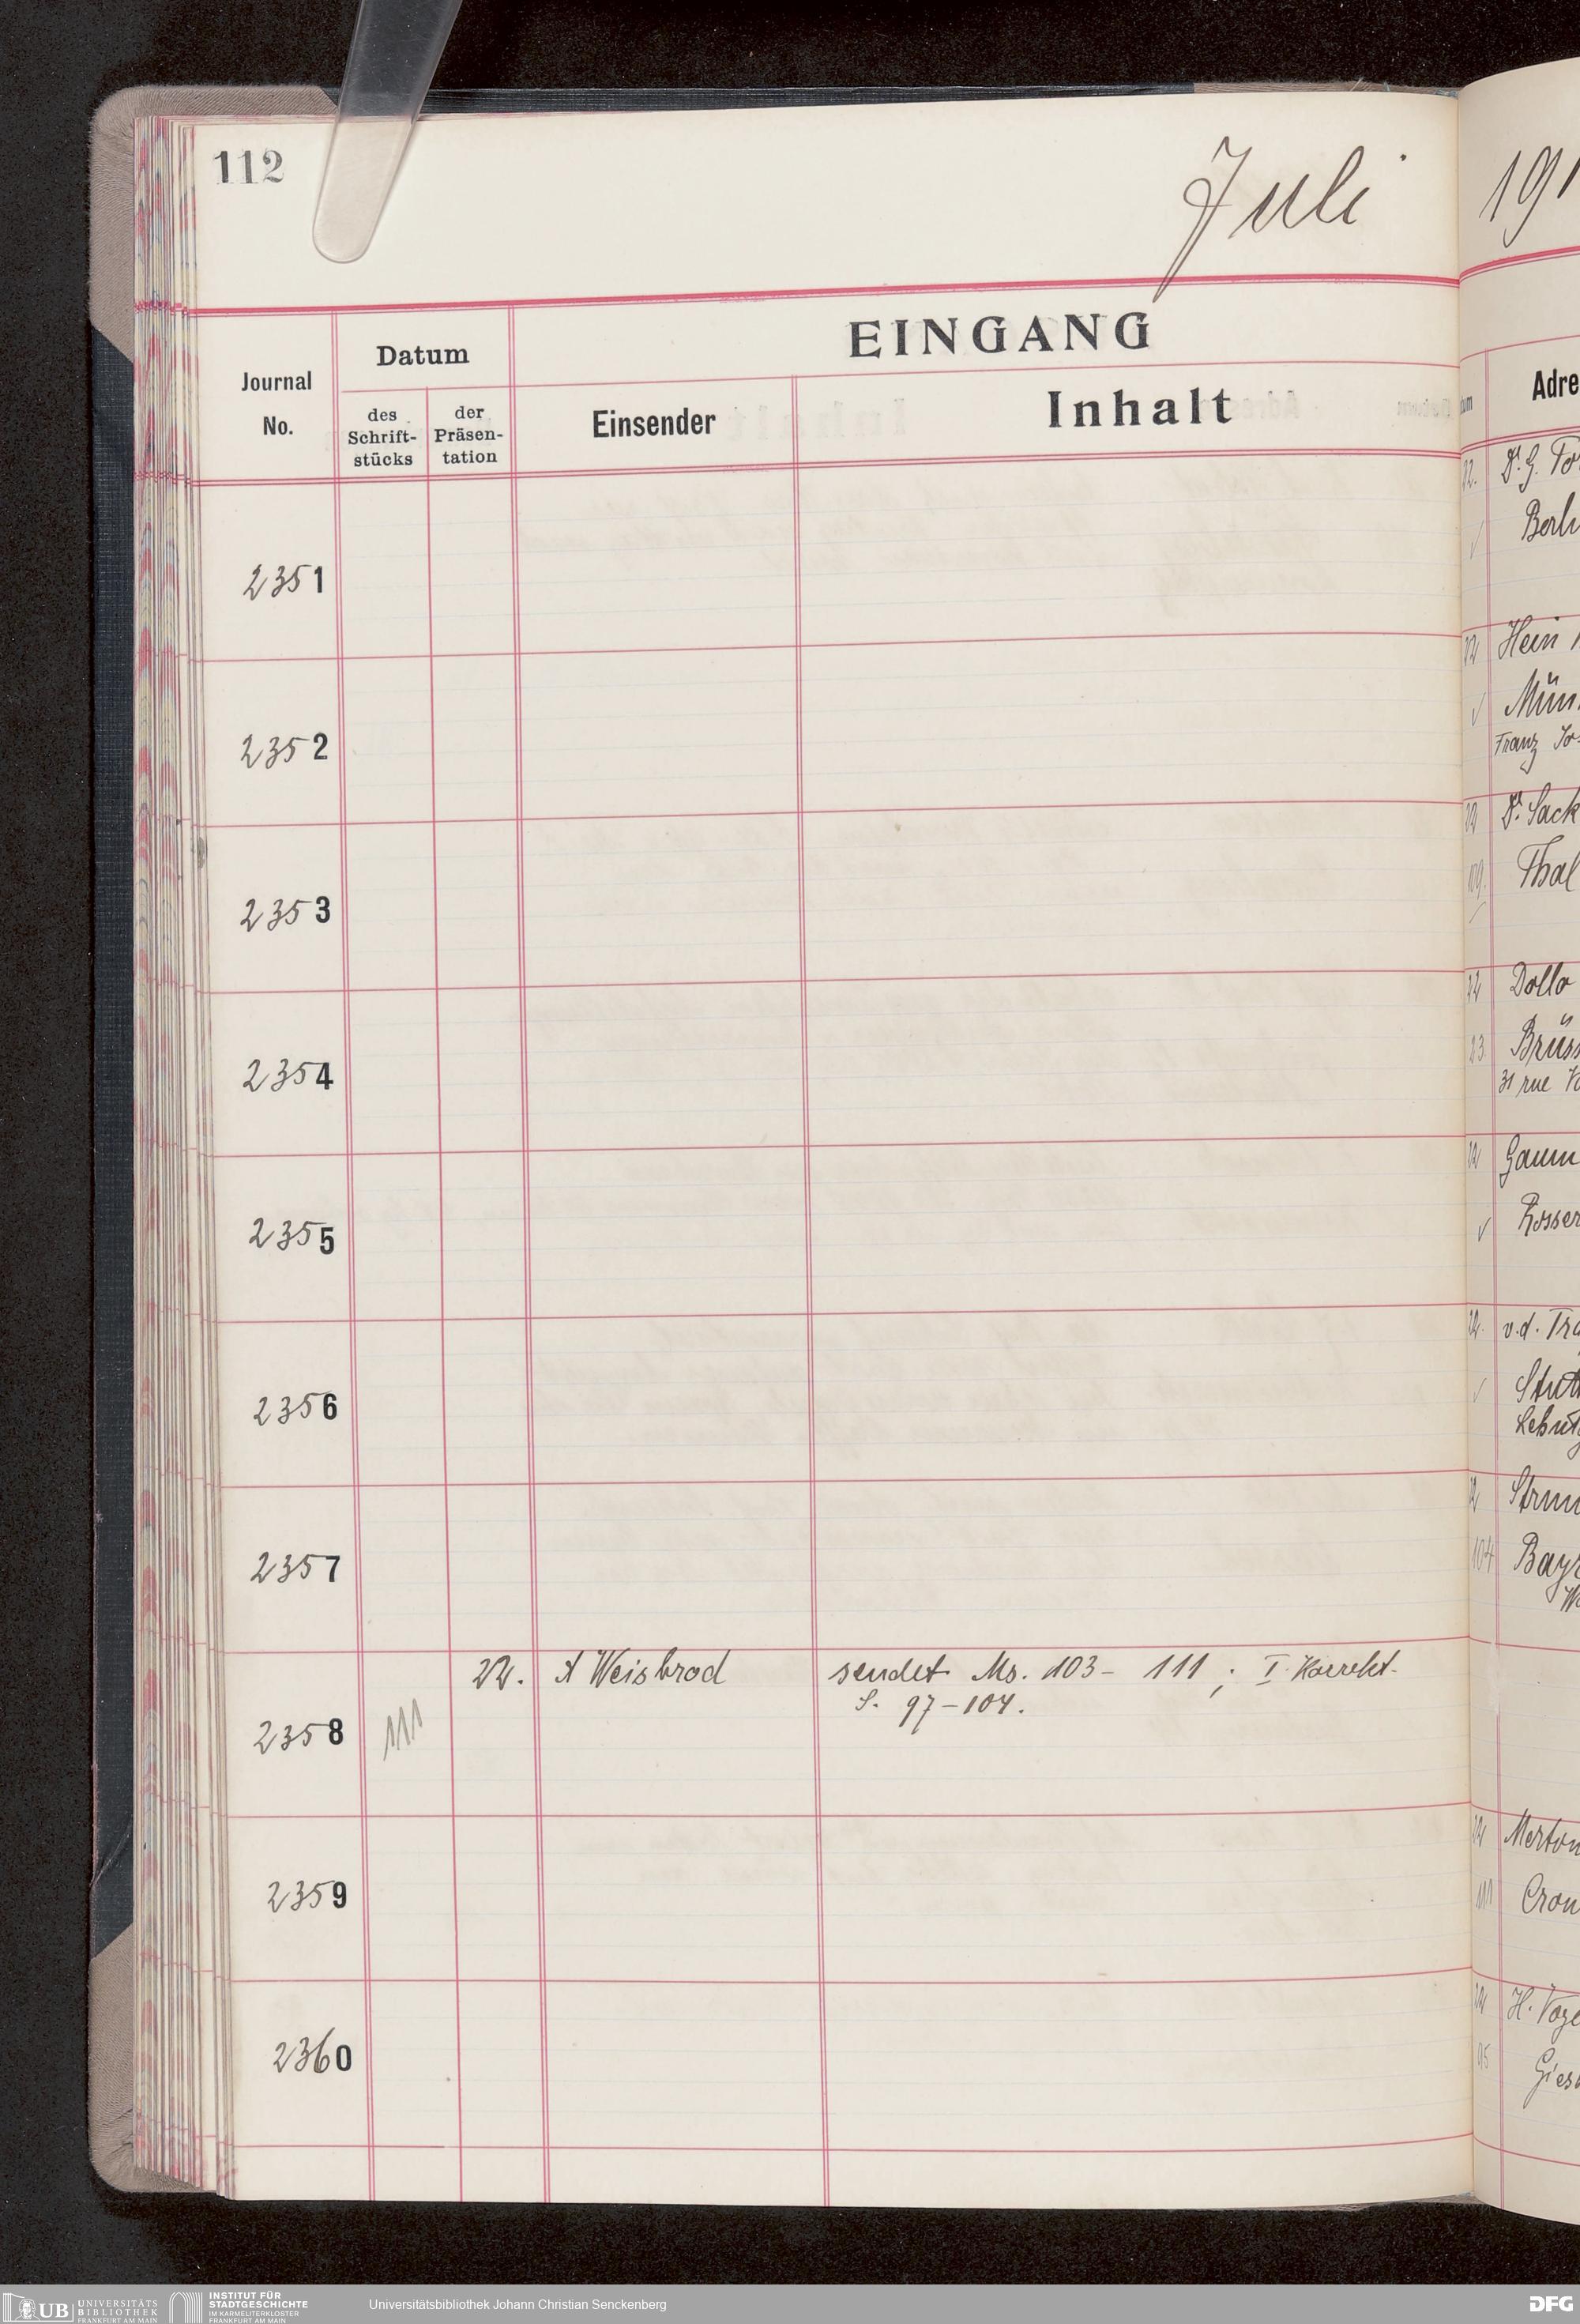 112
Juli
191
EINGANG
Journal
No.
Datum
des
Schrift-
stücks
der
Präsen-
tation
Einsender
Inhalt
2351
2352
2353
2354
2355
2356
2357
2358
111
22. A Weisbrod sendet Ms. 103 – 111 ; I. Korrekt.
S. 97 – 104.
2359
2360
Adre
22. Dr. G. To
Berli
22 Hein
Mün
Franz Jo
22 Dr. Sack
109. Thal
22 Dollo
23. Brüss
31 rue
22 Gaum
Rosser
22. v.d. Tra
Stutt
22 Strum
104 Bay
22 Merton
111 Cron
22 H. Voge
95 Gies
UB UNIVERSITÄTS
BIBLIOTHEK
FRANKFURT AM MAIN
INSTITUT FÜR
STADTGESCHICHTE
IM KARMELITERKLOSTER
FRANKFURT AM MAIN
Universitätsbibliothek Johann Christian Senckenberg
DFG